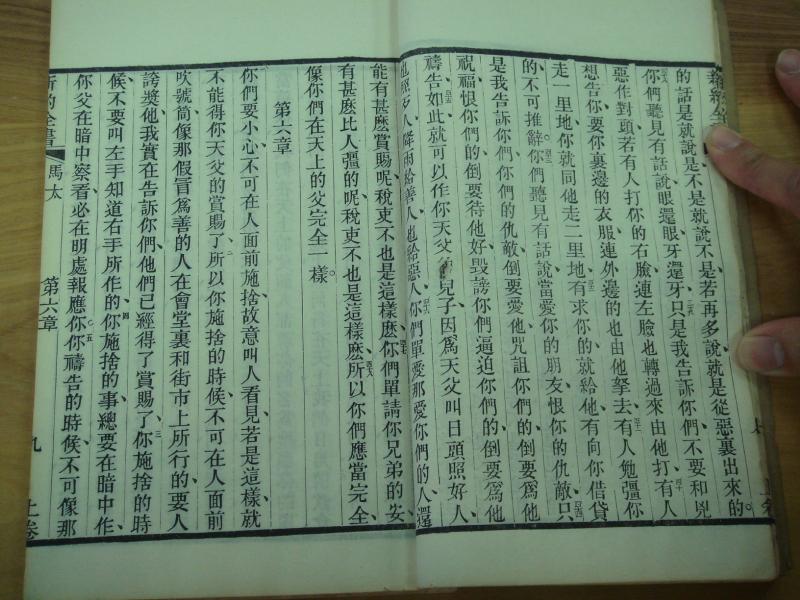 新約全書
的話是就說是不是就說不是若再多說就是從惡裏出來的。
你們聽見有話說眼還眼牙還牙只是我告訴你們不要和兇
惡作對頭若有人打你的右臉連左臉也轉過來由他打有人
想告你要你裏邊的衣服連外邊的也由他拏去有人勉彊你
走一里地你就同他走二里地有求你的就給他有向你借貸
的不可推辭。你們聽見有話說當愛你的朋友恨你的仇敵只
是我告訴你們你們的仇敵倒要愛他咒詛你們的倒要爲他
祝福恨你們的倒要待他好毀謗你們逼迫你們的倒要爲他
禱告如此就可以作你天父的兒子因爲天父叫日頭照好人
也照歹人降雨給善人也給惡人你們單愛那愛你們的人還
能有甚麽賞賜呢稅吏不也是這樣麽你們單請你兄弟的安
有甚麽比人彊的呢稅吏不也是這樣麽所以你們應當完全
像你們在天上的父完全一樣。
第六章
你們要小心不可在人面前施捨故意叫人看見若是這樣就
不能得你天父的賞賜了所以你施捨的時候不可在人面前
吹號筒像那假冒爲善的人在會堂裏和街市上所行的要人
誇獎他我實在告訴你們他們已經得了賞賜了你施捨的時
候不要叫左手知道右手所作的你施捨的事總要在暗中作
你父在暗中察看必在明處報應你你禱告的時候不可像那
新約全書
馬太
第六章
九
上卷